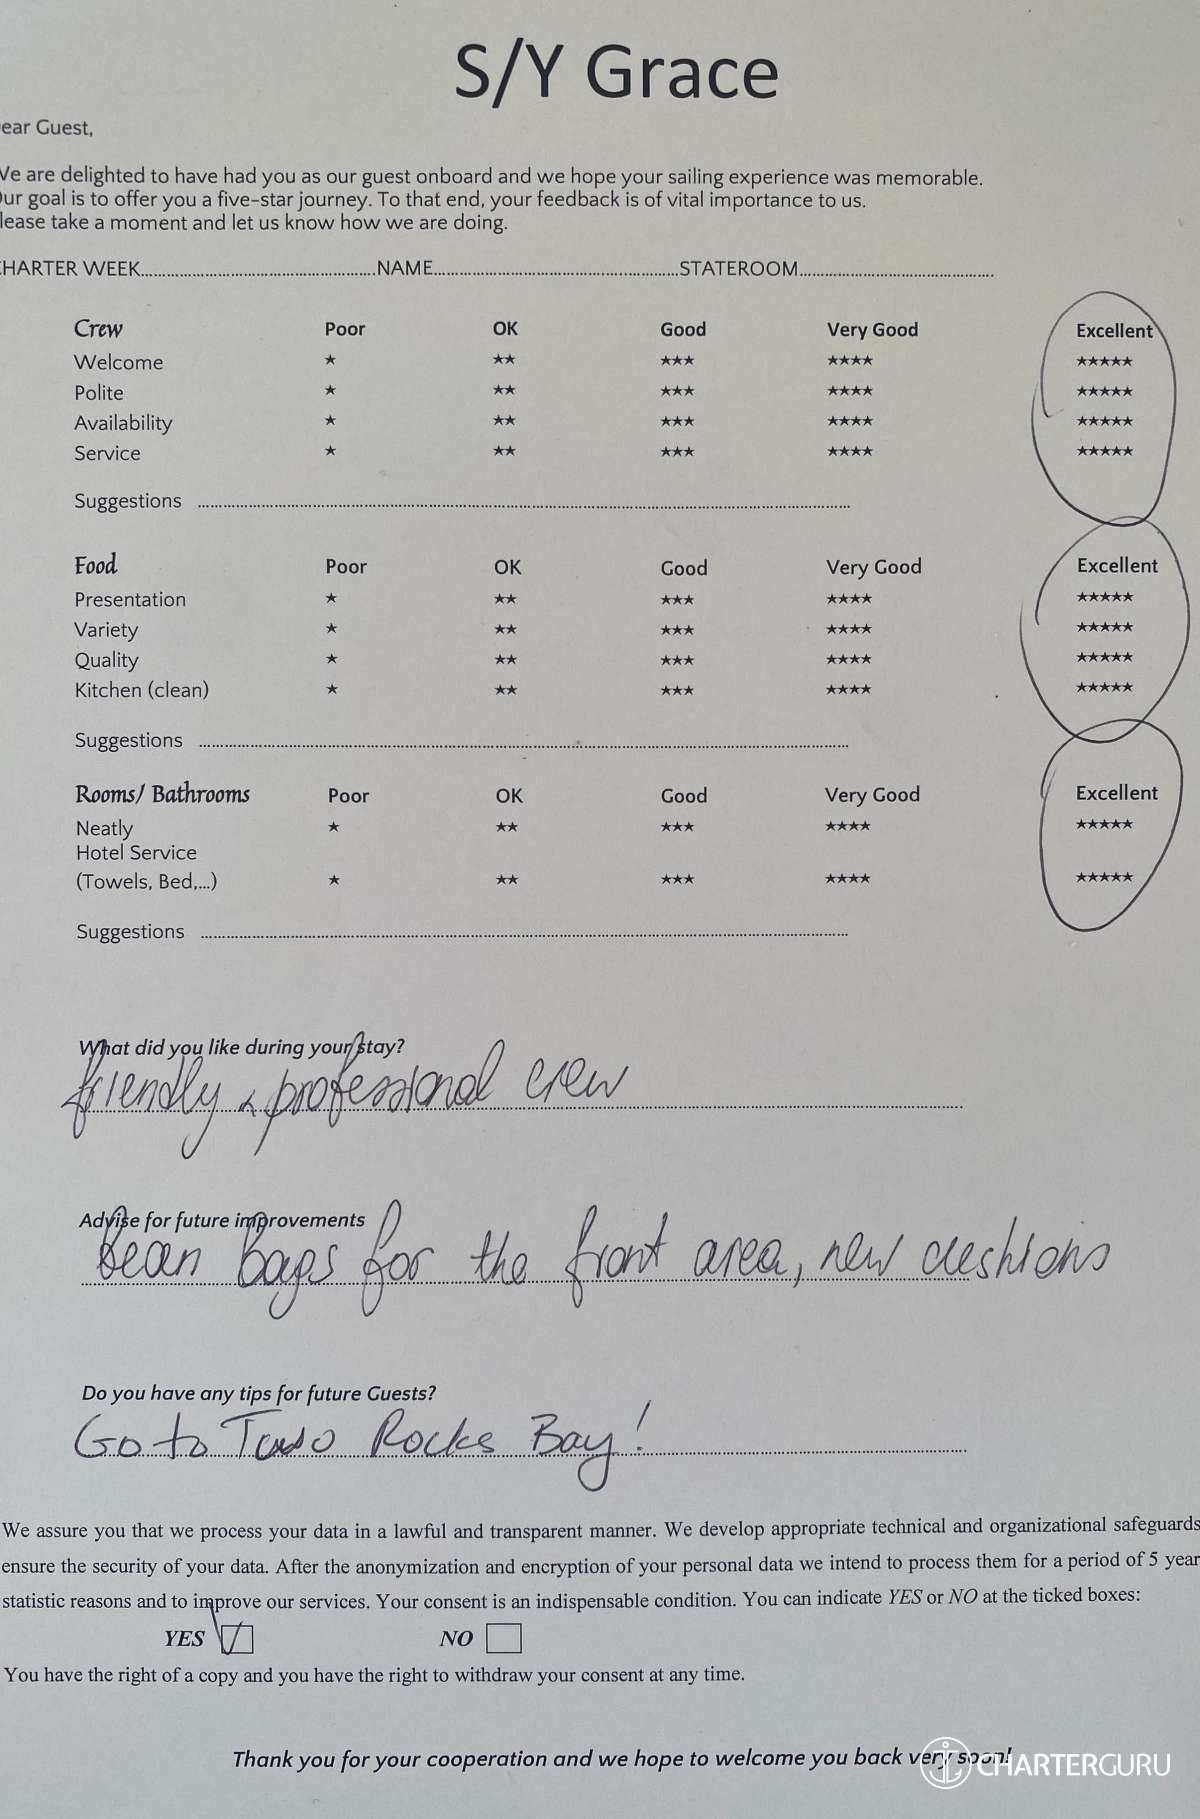 S/Y Grace
ear Guest,
We are delighted to have had you as our guest onboard and we hope your sailing experience was memorable.
Our goal is to offer you a five-star journey. To that end, your feedback is of vital importance to us.
lease take a moment and let us know how we are doing.
HARTER WEEK...............NAME...............STATEROOM...............
Crew Poor OK Good Very Good Excellent
Welcome ★ ★★ ★★★ ★★★★ ★★★★★
Polite ★ ★★ ★★★ ★★★★ ★★★★★
Availability ★ ★★ ★★★ ★★★★ ★★★★★
Service ★ ★★ ★★★ ★★★★ ★★★★★
Suggestions ...............
Food Poor OK Good Very Good Excellent
Presentation ★ ★★ ★★★ ★★★★ ★★★★★
Variety ★ ★★ ★★★ ★★★★ ★★★★★
Quality ★ ★★ ★★★ ★★★★ ★★★★★
Kitchen (clean) ★ ★★ ★★★ ★★★★ ★★★★★
Suggestions ...............
Rooms/ Bathrooms Poor OK Good Very Good Excellent
Neatly ★ ★★ ★★★ ★★★★ ★★★★★
Hotel Service
(Towels, Bed,...) ★ ★★ ★★★ ★★★★ ★★★★★
Suggestions ...............
What did you like during your stay?
friendly & professional crew
Advise for future improvements
bean bags for the front area, new cushions
Do you have any tips for future Guests?
Go to Two Rocks Bay!
We assure you that we process your data in a lawful and transparent manner. We develop appropriate technical and organizational safeguards
ensure the security of your data. After the anonymization and encryption of your personal data we intend to process them for a period of 5 year
statistic reasons and to improve our services. Your consent is an indispensable condition. You can indicate YES or NO at the ticked boxes:
YES NO
You have the right of a copy and you have the right to withdraw your consent at any time.
Thank you for your cooperation and we hope to welcome you back very soon!
CHARTERGURU